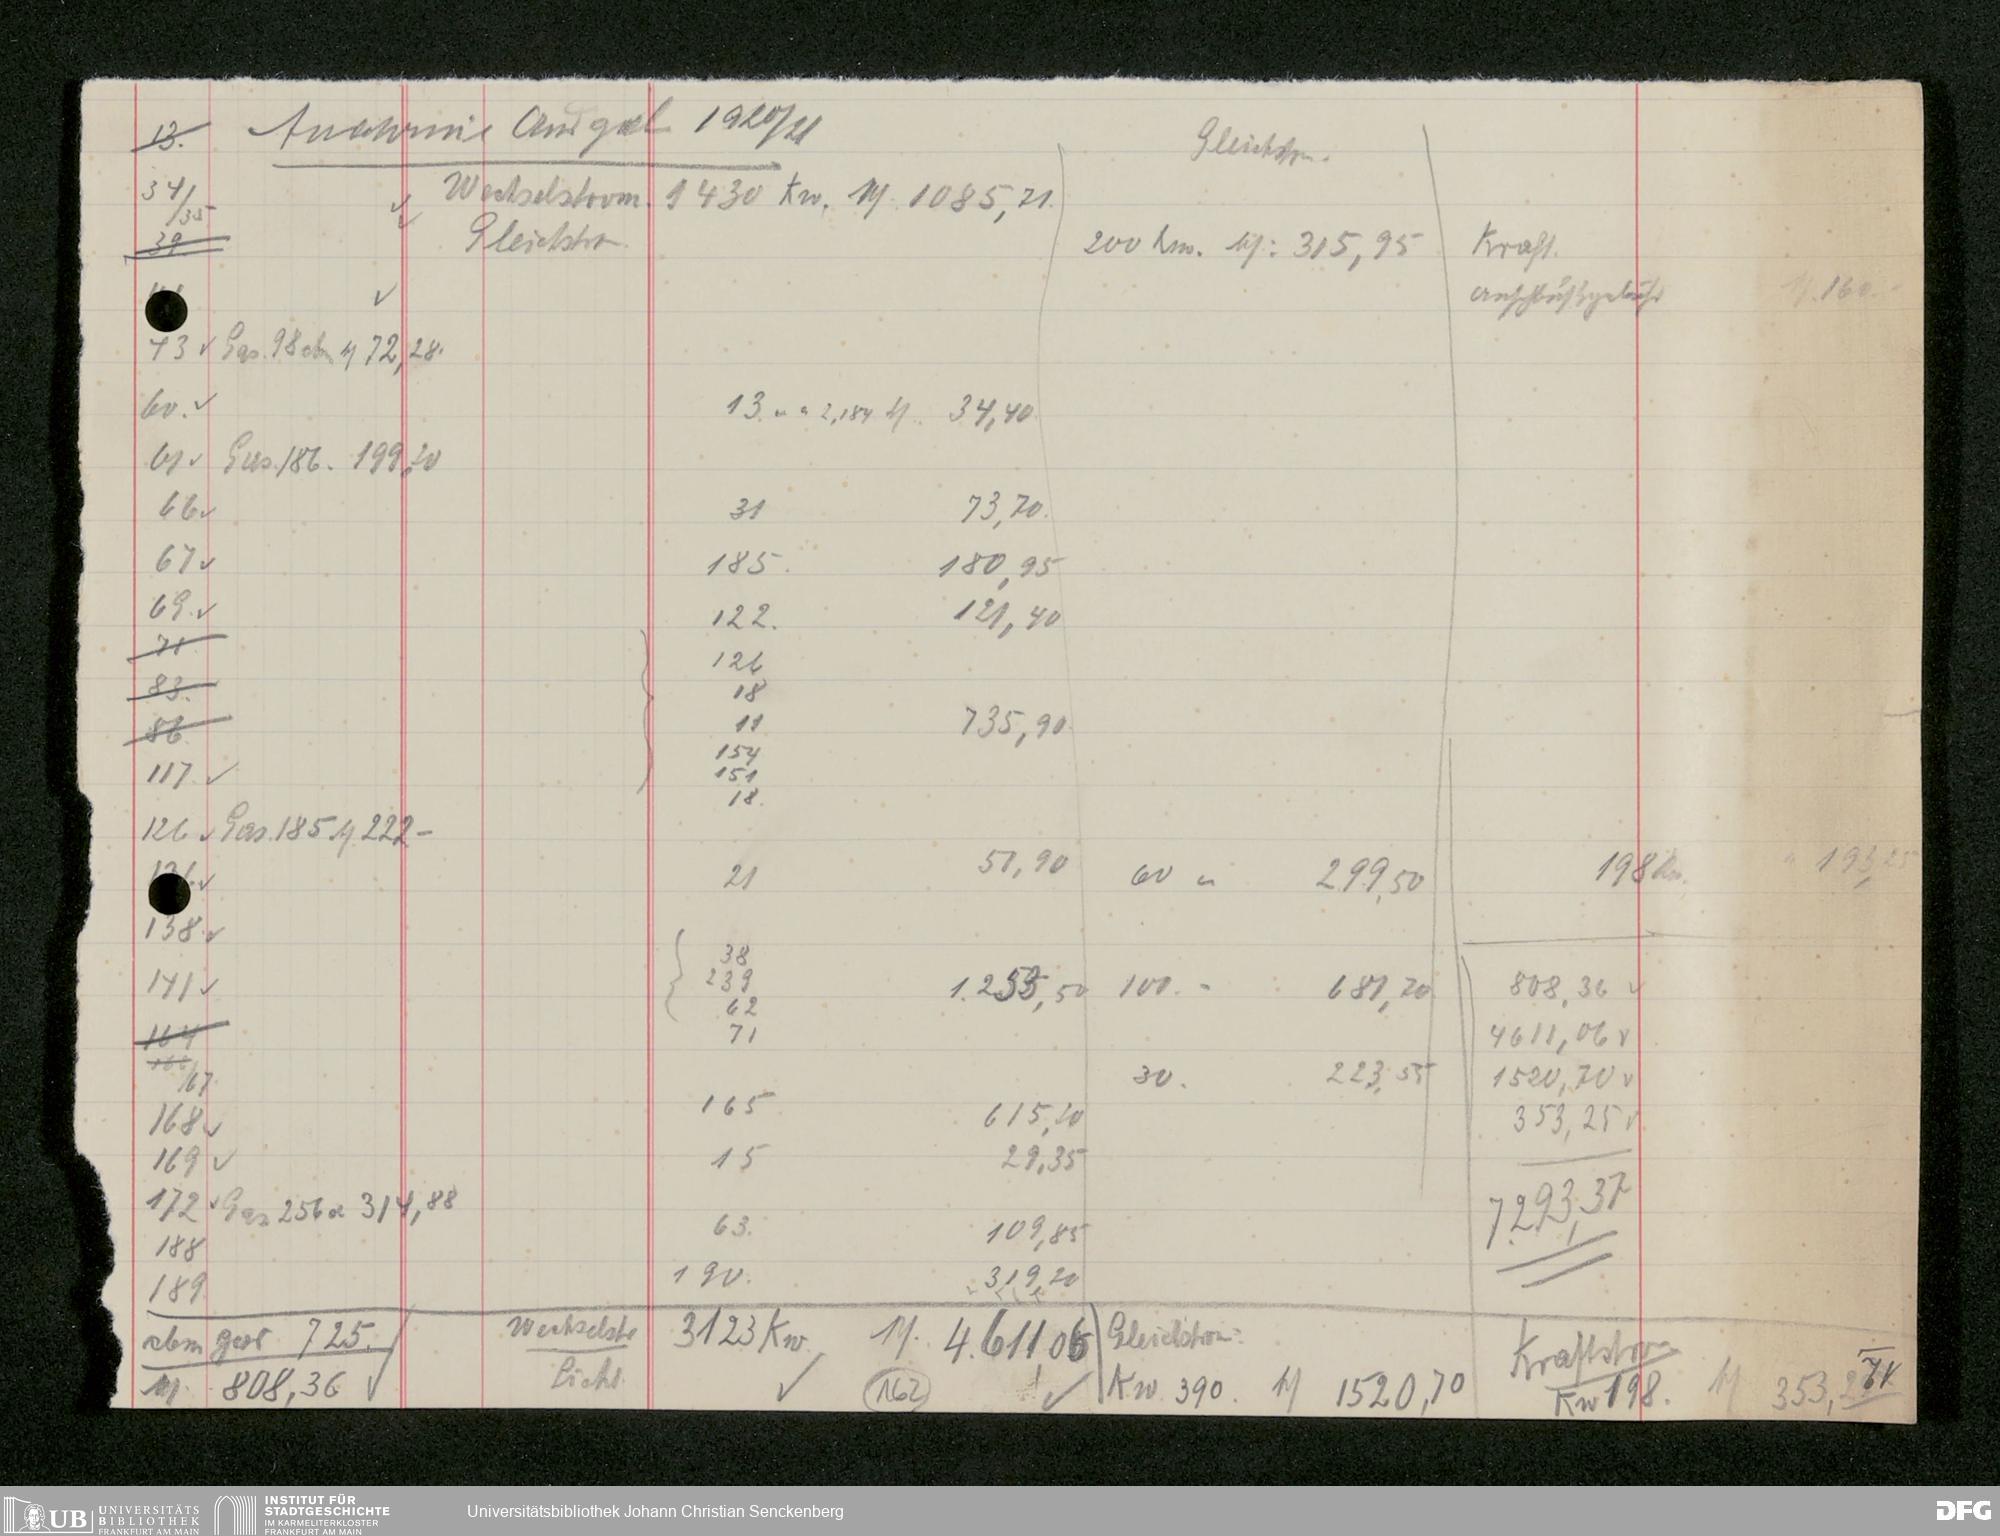 13. Anatomie Ausgab 1920/21
Gleichstrom.
34/35 ✓ Wechselstrom. 1430 Kw. M 1085,71.
39 ✓ Gleichstrom. 200 Kw. M: 315,95 Kraft.
✓ Anschlußgebühr M. 160.-
43 ✓ Gas. 98 cbm M 72,28.
60. ✓ 13. " " 2,184 M. 34,40
61 ✓ Gas. 186. 199,20
66 ✓ 31 73,70.
67 ✓ 185. 180,95
69. ✓ 122. 121,40
71 126
83. 18
86 11 735,90
154
117. ✓ 151
18.
126 ✓ Gas. 185 M. 222-
136. ✓ 21 51,90 60 " 299,50 198 Kw. " 193,25
138. ✓
38
141 ✓ 239 1.255,50 100. " 681,70 808,36 ✓
62
164 71 4611,06 ✓
166/67 30. 223,55 1520,70 ✓
168 ✓ 165 615,20 353,25 ✓
169 ✓ 15 29,35
172 ✓ Gas 256 a 314,88 7293,37
188 63. 109,85
189 190. 319,20
cbm gas 725. Wechselstr 3123 Kw. M. 4.611 06 Gleichstrom: Kraftstrom
M. 808,36 ✓ Licht. ✓ (162) ✓ Kw. 390. M 1520,70 Kw 198. M 353,25
UB UNIVERSITÄTS
BIBLIOTHEK
FRANKFURT AM MAIN
INSTITUT FÜR
STADTGESCHICHTE
IM KARMELITERKLOSTER
FRANKFURT AM MAIN
Universitätsbibliothek Johann Christian Senckenberg
DFG